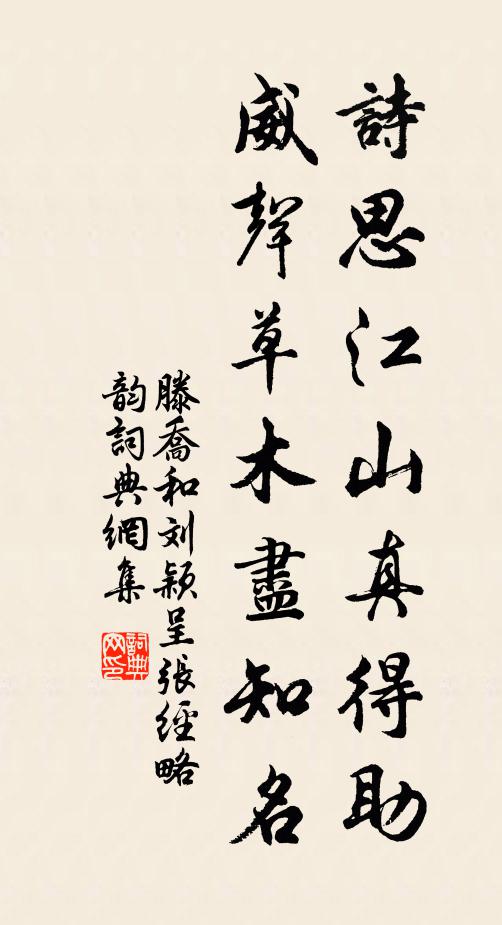 詩思江山真得助
威聲草木盡知名
滕喬和刘颍呈張經略
韵詞典網集
詞典网印